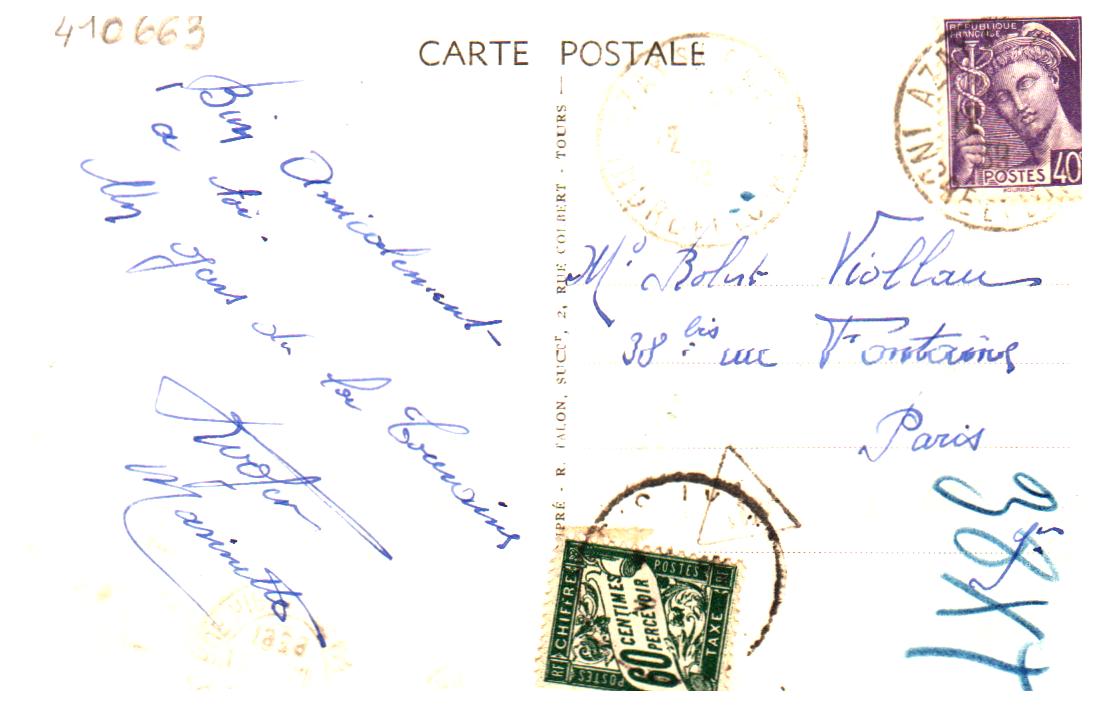 410663
CARTE POSTALE
Bien Amicalement
à toi.
Un gars de la Touraine
Roger
Marinette
IMPRÉ - R. TALON, SUCCr, 2, RUE COLBERT - TOURS —
RÉPUBLIQUE
FRANÇAISE
POSTES 40
Mr Robert Viollau
38 bis rue Fontaine
Paris
POSTES
CHIFFRE
TAXE
60 CENTIMES
À PERCEVOIR
POSTES
RF